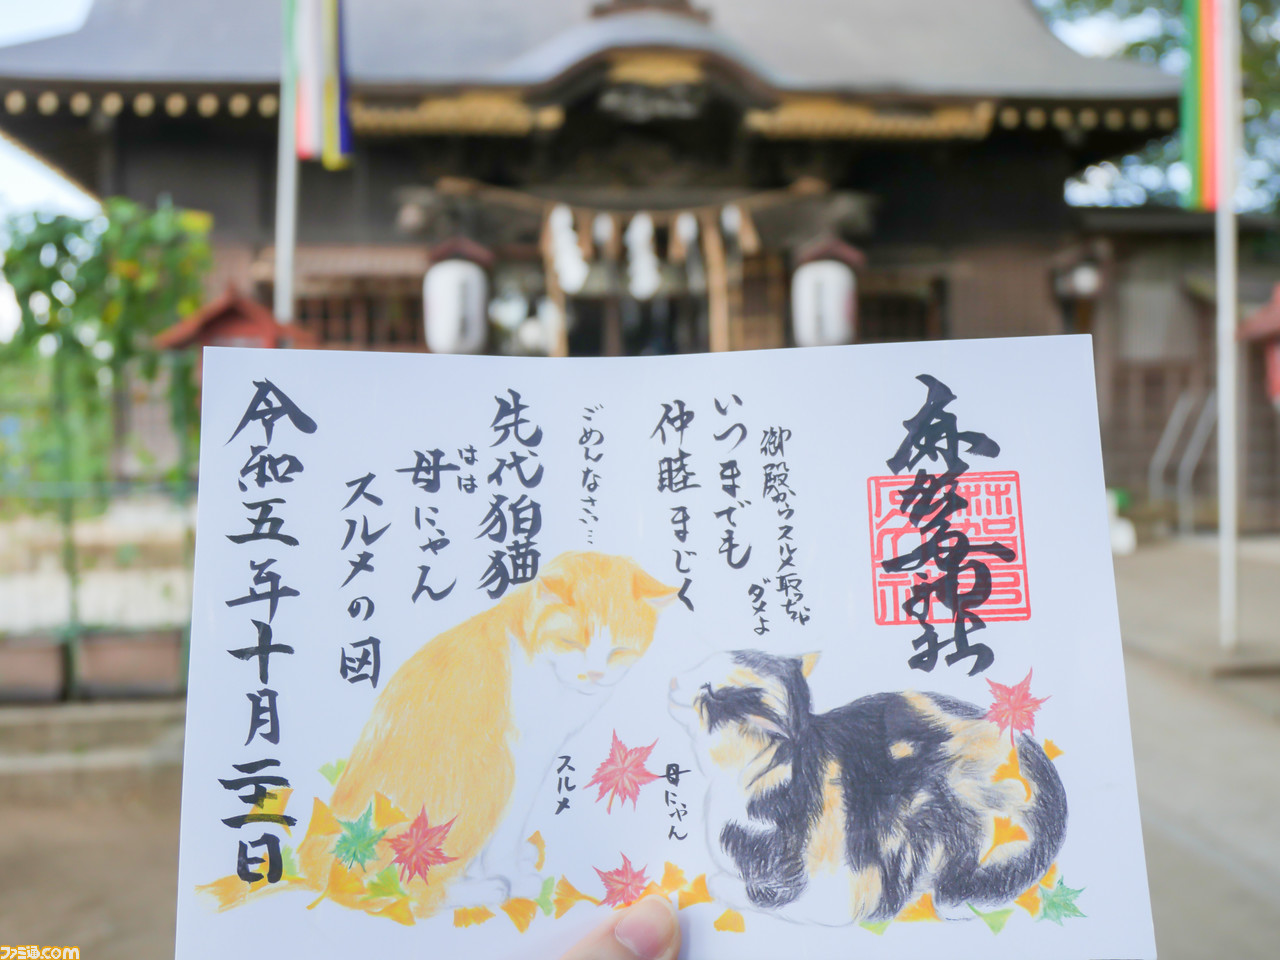 麻賀多神社
麻賀多神社
御殿
スルメ取っちゃ
ダメよ
いつまでも
仲睦まじく
ごめんなさい…
先代狛猫
はは
母にゃん
スルメの図
令和五年十月二十二日
母にゃん
スルメ
ファミ通.com